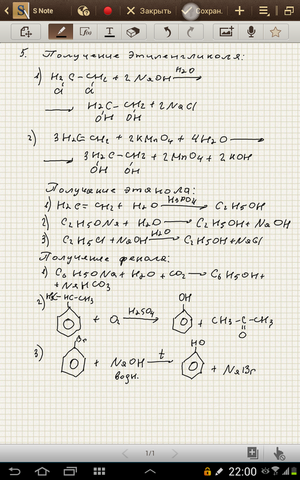 S Note
Закрыть
Сохран.
5. Получение этиленгликоля:
1) H2C–CH2 + 2NaOH H2O→
Cl Cl
→ H2C–CH2 + 2NaCl
OH OH
2) 3H2C=CH2 + 2KMnO4 + 4H2O →
→ 3H2C–CH2 + 2MnO2 + 2KOH
OH OH
Получение этанола:
1) H2C=CH2 + H2O H3PO4→ C2H5OH
2) C2H5ONa + H2O → C2H5OH + NaOH
3) C2H5Cl + NaOH H2O→ C2H5OH + NaCl
Получение фенола:
1) C6H5ONa + H2O + CO2 → C6H5OH +
+ NaHCO3
2) H3C–HC–CH3 OH
+ O2 H2SO4→ + CH3–C–CH3
O
3) Br HO
+ NaOH t→ + NaBr
водн.
1/1
22:00